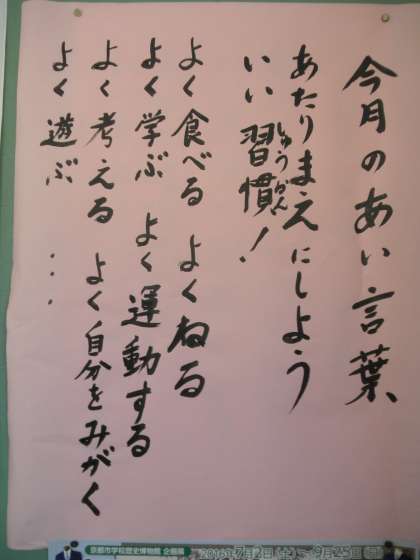 今月のあい言葉
あたりまえにしよう
いい習慣！
しゅうかん
よく食べる よくねる
よく学ぶ よく運動する
よく考える よく自分をみがく
よく遊ぶ…
京都市学校歴史博物館 企画展
2016年7月2日(土)〜9月25日(日)